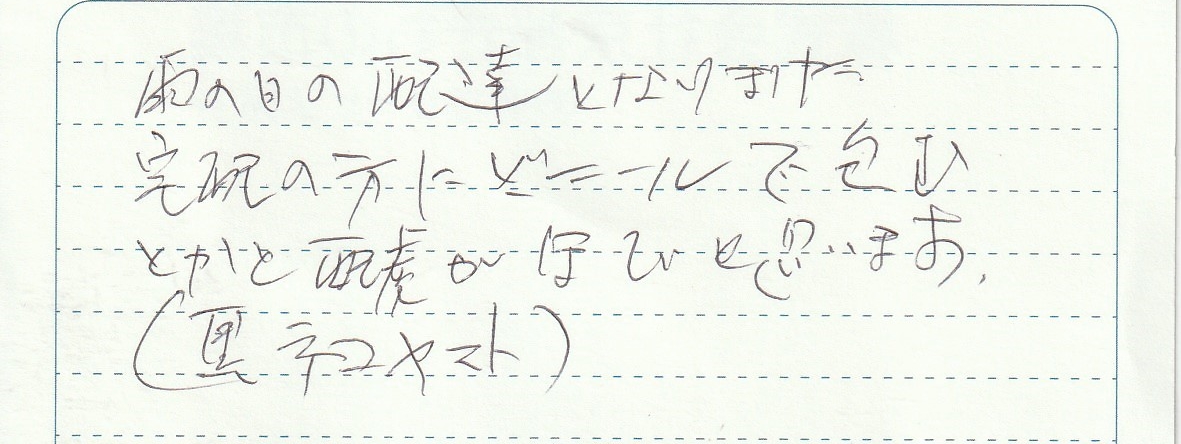 雨の日の配達となりました
宅配の方にビニールで包む
とかと配慮がほしいと思います。
(黒ネコヤマト)